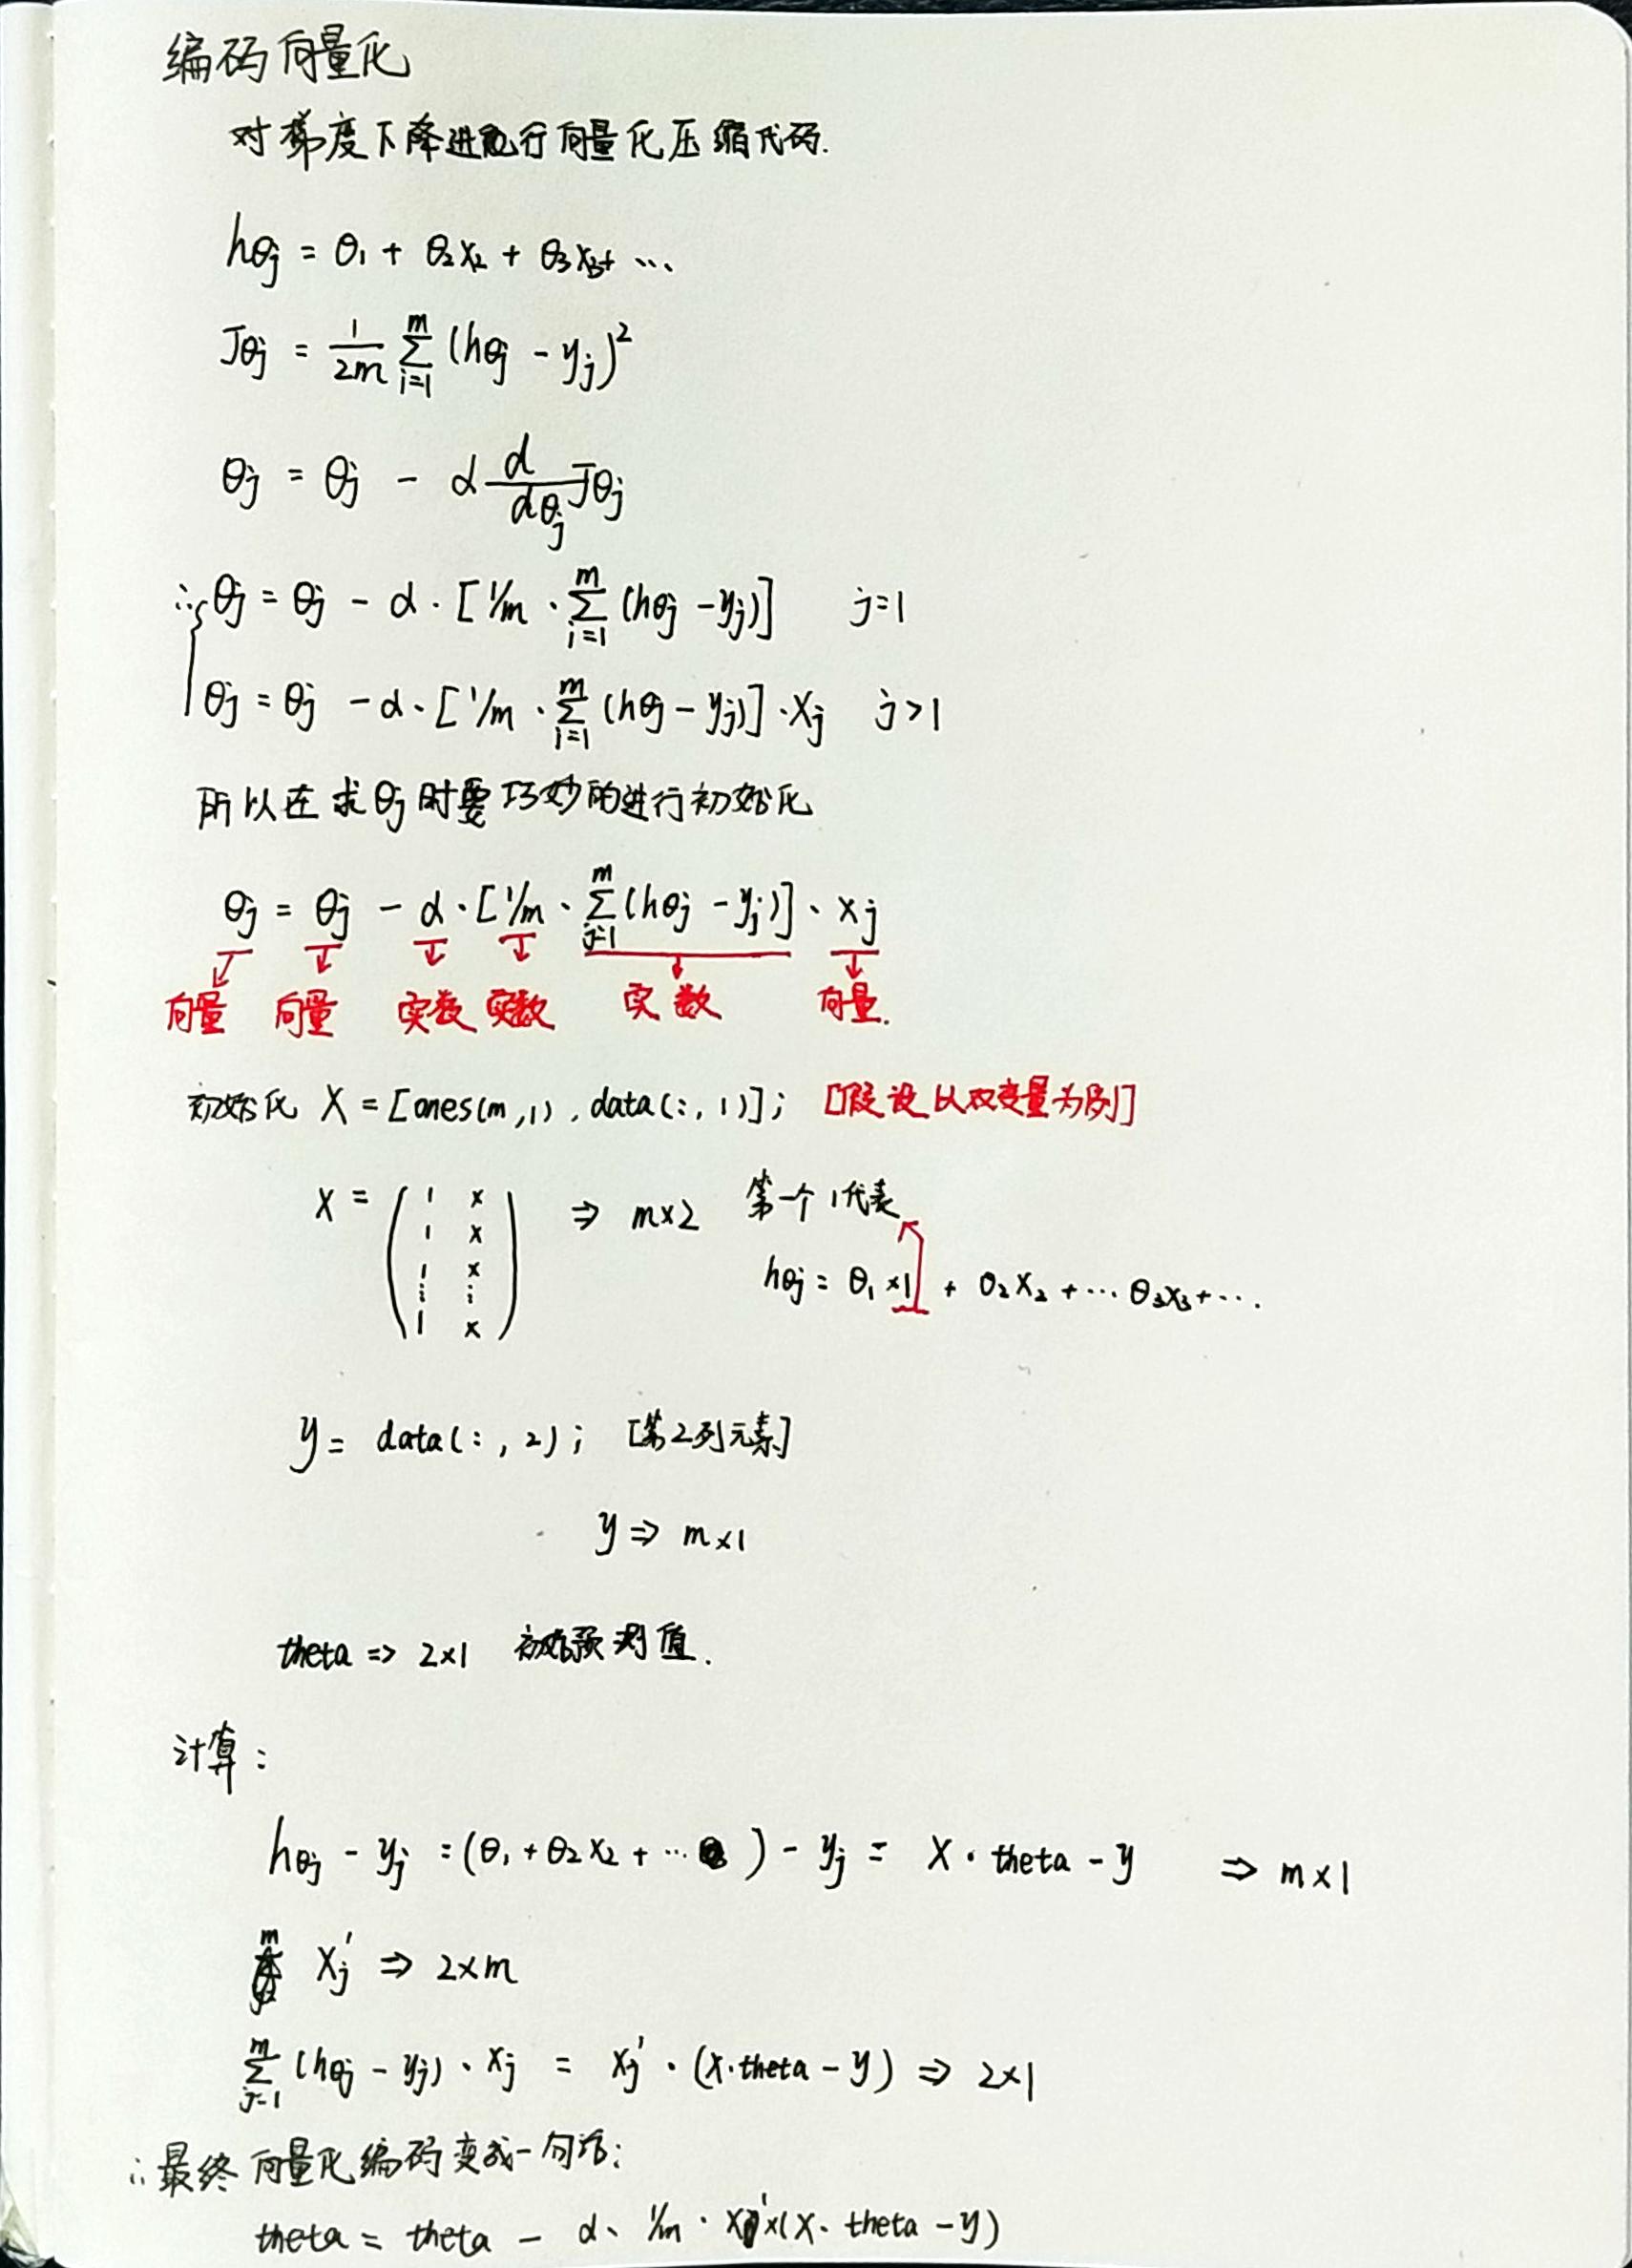 编码向量化
对梯度下降进行向量化压缩代码.
hθj = θ1 + θ2x2 + θ3x3+ ...
Jθj = 1/2m ∑(i=1→m) (hθj - yj)²
θj = θj - α d/dθj Jθj
∴ { θj = θj - α · [1/m · ∑(i=1→m) (hθj - yj)]  j=1
θj = θj - α · [1/m · ∑(i=1→m) (hθj - yj)] · xj  j>1
所以在求θj时要巧妙的进行初始化
θj = θj - α · [1/m · ∑(j=1→m) (hθj - yj)] · xj
向量 向量 实数 实数 实数 向量.
初始化 X = [ones(m,1), data(:,1)]; [假设以双变量为例]
X = ( 1 x
1 x
1 x
⋮ ⋮
1 x ) ⇒ m×2
第一个1代表
hθj = θ1 ×1 + θ2x2 + ... θ3x3 + ....
y = data(:,2); [第2列元素]
y ⇒ m×1
theta => 2×1 初始预测值.
计算:
hθj - yj = (θ1 + θ2x2 + ... ) - yj = X · theta - y ⇒ m×1
xj' ⇒ 2×m
∑(j=1→m) (hθj - yj) · xj = xj' · (x·theta - y) ⇒ 2×1
∴ 最终向量化编码变成一句话:
theta = theta - α · 1/m · x'×(x · theta - y)